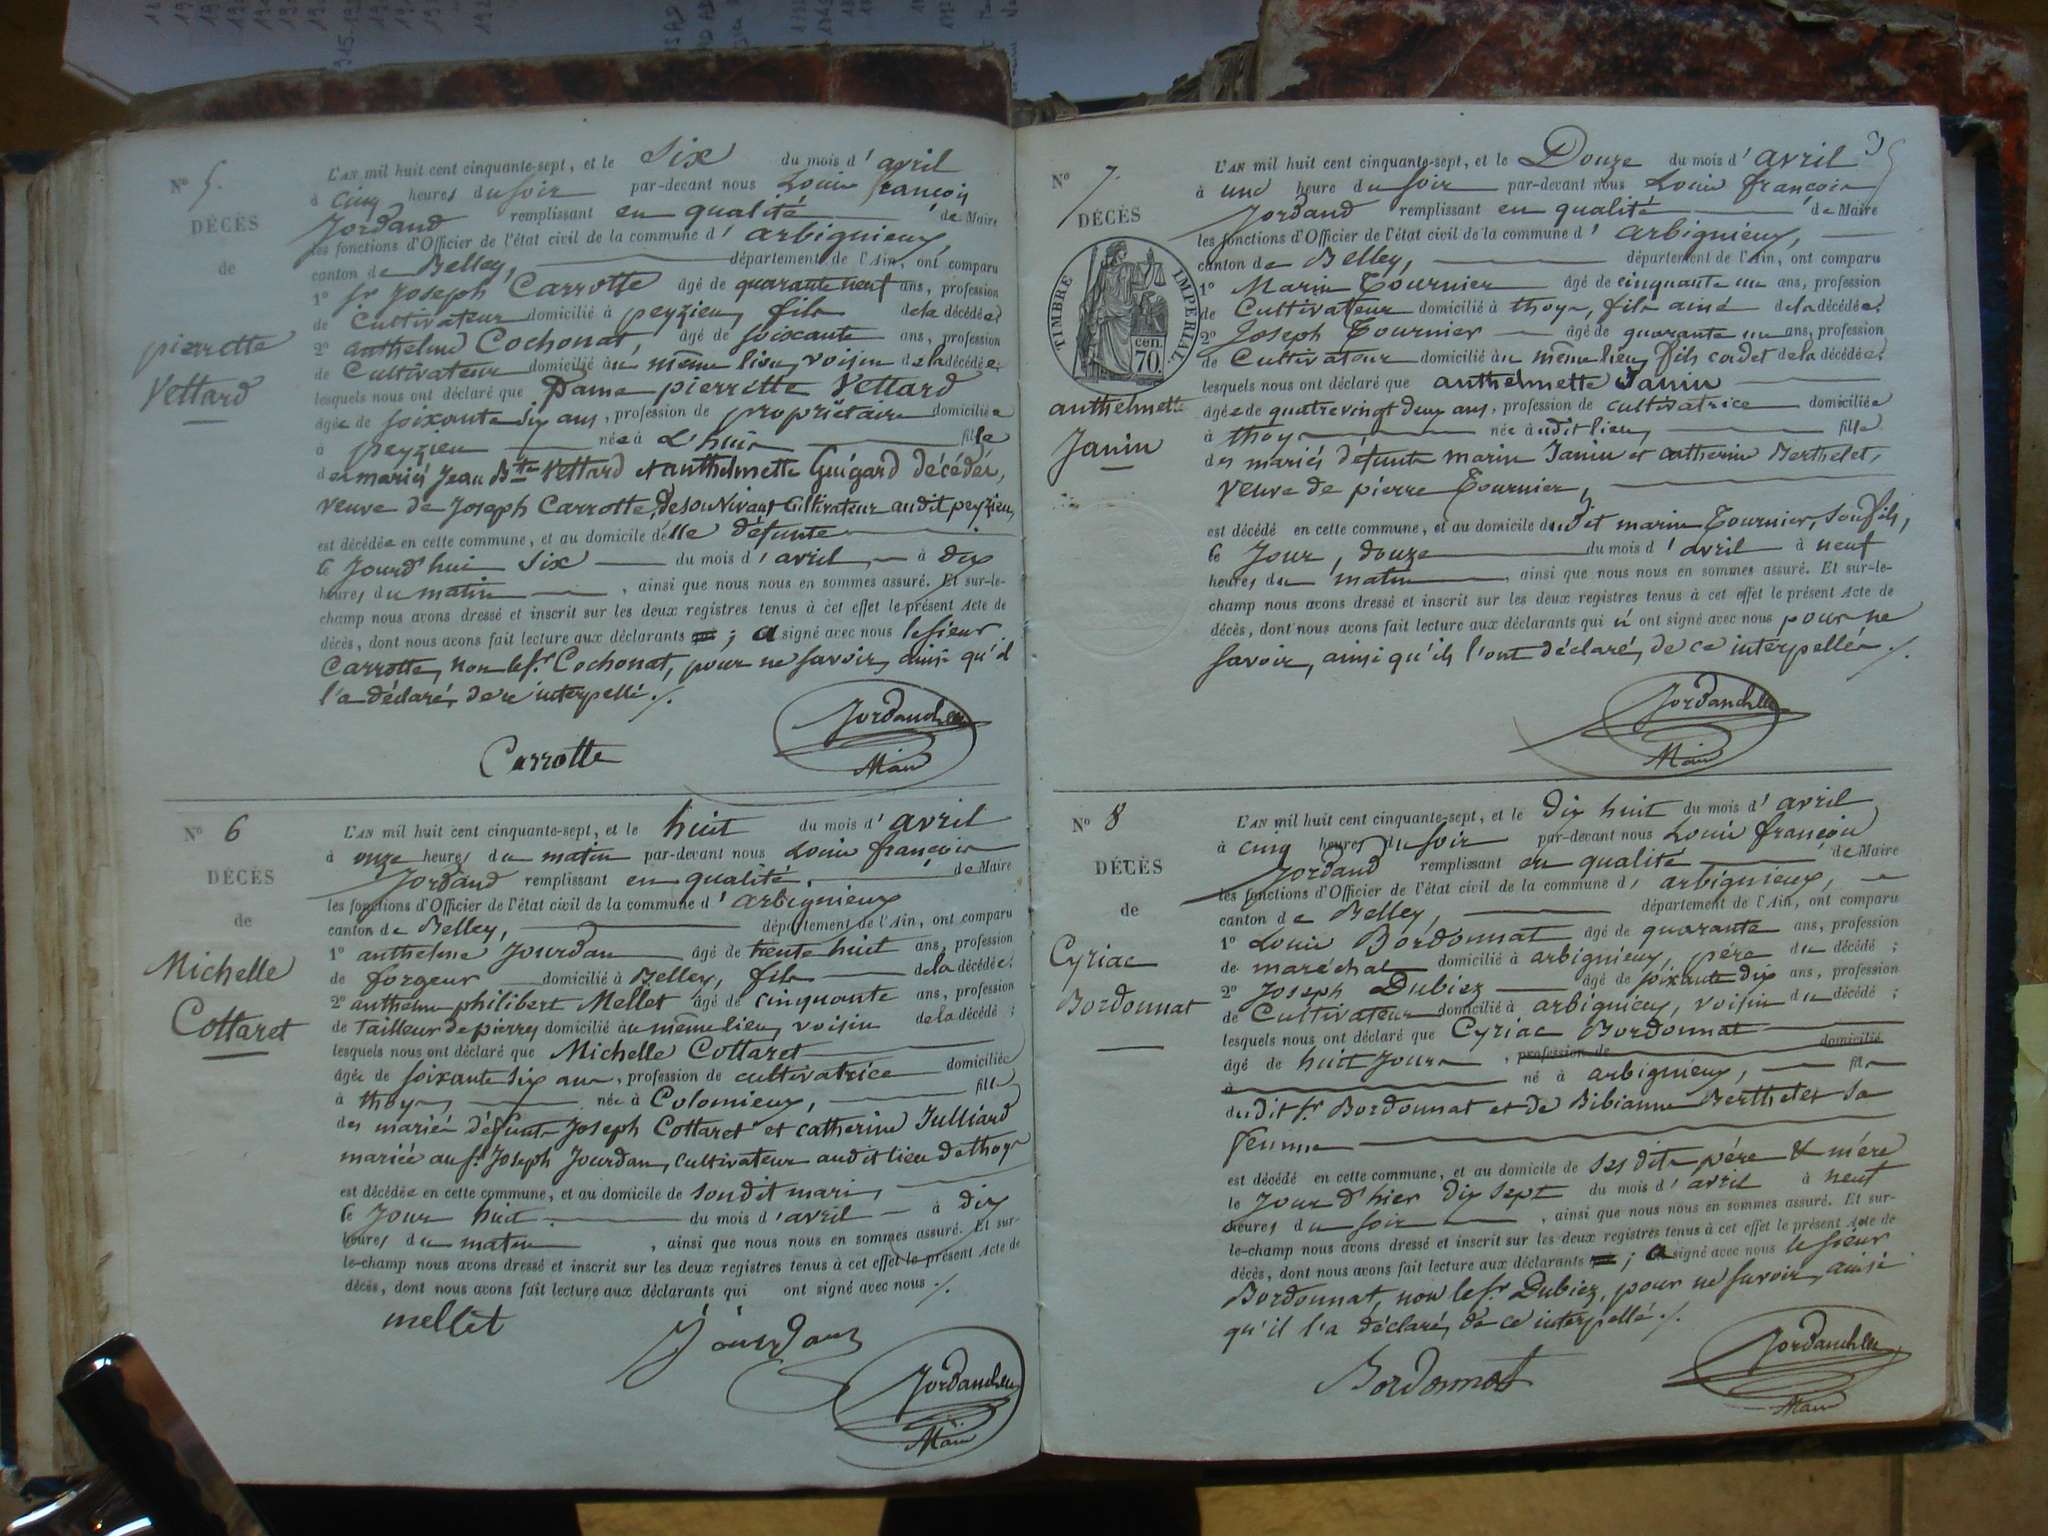 N° 5.
DÉCÈS
de
pierrette
Vettard
L'AN mil huit cent cinquante-sept, et le Six du mois d'avril
à cinq heures du soir par-devant nous Louis françois
Jordand remplissant en qualité de Maire
les fonctions d'Officier de l'état civil de la commune d'arbignieux,
canton de Belley, département de l'Ain, ont comparu
1° sr Joseph Carrotte âgé de quarante neuf ans, profession
de Cultivateur domicilié à peyzieu, fils de la décédée;
2° anthelme Cochonat, âgé de soixante ans, profession
de Cultivateur domicilié au même lieu, voisin de la décédée;
lesquels nous ont déclaré que Dame pierrette Vettard
âgée de soixante six ans, profession de propriétaire domiciliée
à peyzieu née à L'huis fille
des mariés Jean Bte Vettard et anthelmette Guigard décédés,
veuve de Joseph Carrotte, de son vivant Cultivateur audit peyzieu,
est décédée en cette commune, et au domicile d'elle défunte
ce Jourd'hui six du mois d'avril à dix
heures du matin, ainsi que nous nous en sommes assuré. Et sur-le-
champ nous avons dressé et inscrit sur les deux registres tenus à cet effet le présent Acte de
décès, dont nous avons fait lecture aux déclarants ; a signé avec nous le sieur
Carrotte, non le sr Cochonat, pour ne savoir, ainsi qu'il
l'a déclaré, de ce interpellé ./.
Carrotte
Maire
N° 6
DÉCÈS
de
Michelle
Cottaret
L'AN mil huit cent cinquante-sept, et le huit du mois d'avril
à onze heures du matin par-devant nous Louis françois
Jordand remplissant en qualité de Maire
les fonctions d'Officier de l'état civil de la commune d'arbignieux
canton de Belley, département de l'Ain, ont comparu
1° anthelme Jourdan âgé de trente huit ans, profession
de forgeur domicilié à Belley, fils de la décédée;
2° anthelme philibert Mellet âgé de cinquante ans, profession
de Tailleur de pierres domicilié au même lieu, voisin de la décédé;
lesquels nous ont déclaré que Michelle Cottaret
âgée de soixante six ans, profession de cultivatrice domiciliée
à thoys, née à Colomieux, fille
des mariés défunts Joseph Cottaret et catherine Julliard
mariée au sr Joseph Jourdan, cultivateur audit lieu de thoys
est décédée en cette commune, et au domicile de son dit mari,
ce Jour huit du mois d'avril à dix
heures du matin, ainsi que nous nous en sommes assuré. Et sur-
le-champ nous avons dressé et inscrit sur les deux registres tenus à cet effet le présent Acte de
décès, dont nous avons fait lecture aux déclarants qui ont signé avec nous ./.
mellet
Jourdan
Maire
35
N° 7.
DÉCÈS
TIMBRE IMPÉRIAL
cen.
70.
anthelmette
Janin
L'AN mil huit cent cinquante-sept, et le Douze du mois d'avril
à une heure du soir par-devant nous Louis françois
Jordand remplissant en qualité de Maire
les fonctions d'Officier de l'état civil de la commune d'arbignieux,
canton de Belley, département de l'Ain, ont comparu
1° Marin Tournier âgé de cinquante un ans, profession
de Cultivateur domicilié à thoys, fils ainé de la décédée;
2° Joseph Tournier âgé de quarante un ans, profession
de Cultivateur domicilié au même lieu, fils cadet de la décédée;
lesquels nous ont déclaré que anthelmette Janin
âgée de quatrevingt deux ans, profession de cultivatrice domiciliée
à thoys née audit lieu, fille
des mariés défunts marin Janin et catherine Berthelet,
veuve de pierre Tournier,
est décédé en cette commune, et au domicile dudit marin Tournier, son fils,
ce Jour, douze du mois d'avril à neuf
heures du matin ainsi que nous nous en sommes assuré. Et sur-le-
champ nous avons dressé et inscrit sur les deux registres tenus à cet effet le présent Acte de
décès, dont nous avons fait lecture aux déclarants qui n'ont signé avec nous pour ne
savoir, ainsi qu'ils l'ont déclaré, de ce interpellés ./.
Maire
N° 8
DÉCÈS
de
Cyriac
Bordonnat
L'AN mil huit cent cinquante-sept, et le dix huit du mois d'avril
à cinq heures du soir par-devant nous Louis françois
Jordand remplissant en qualité de Maire
les fonctions d'Officier de l'état civil de la commune d'arbignieux,
canton de Belley, département de l'Ain, ont comparu
1° Louis Bordonnat âgé de quarante ans, profession
de maréchal domicilié à arbignieux, père du décédé;
2° Joseph Dubiez âgé de soixante dix ans, profession
de Cultivateur domicilié à arbignieux, voisin du décédé;
lesquels nous ont déclaré que Cyriac Bordonnat
âgé de huit Jours, profession de domicilié
à né à arbignieux, fils
dudit sr Bordonnat et de Bibianne Berthelet sa
femme
est décédé en cette commune, et au domicile de ses dits père & mère
le Jour d'hier dix sept du mois d'avril à neuf
heures du soir, ainsi que nous nous en sommes assuré. Et sur-
le-champ nous avons dressé et inscrit sur les deux registres tenus à cet effet le présent Acte de
décès, dont nous avons fait lecture aux déclarants ; a signé avec nous le sieur
Bordonnat, non le sr Dubiez, pour ne savoir, ainsi
qu'il l'a déclaré, de ce interpellé ./.
Bordonnat
Maire